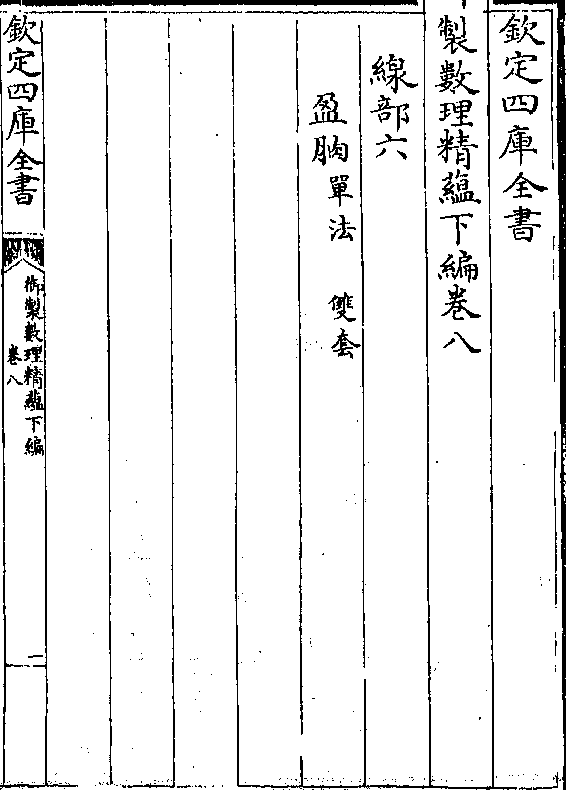 欽定四庫全書
製數理精藴下編卷八
線部六
盈朒單法　雙套
欽定四庫全書
御製數理精藴下編
卷八
一